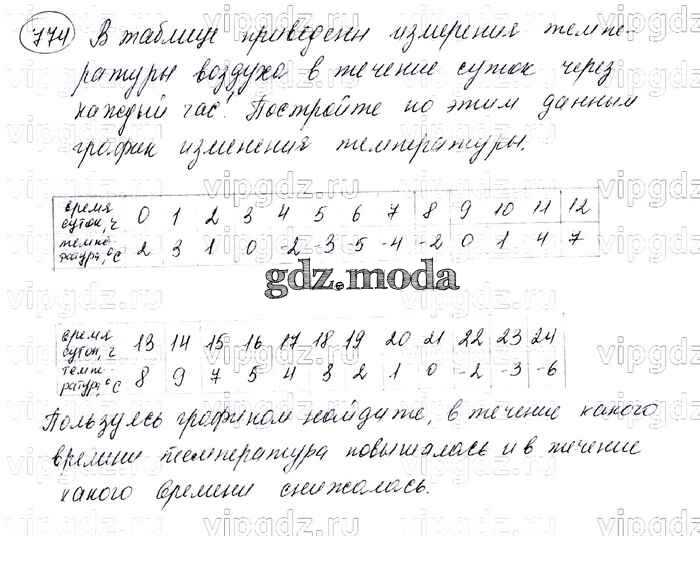 774 В таблице приведены измерения темпе-
ратуры воздуха в течение суток через
каждый час. Постройте по этим данным
график изменения температуры.
время суток, ч 0 1 2 3 4 5 6 7 8 9 10 11 12
темпе-ратура, °С 2 3 1 0 -2 -3 -5 -4 -2 0 1 4 7
gdz.moda
время суток, ч 13 14 15 16 17 18 19 20 21 22 23 24
темпе-ратура, °С 8 9 7 5 4 3 2 1 0 -2 -3 -6
Пользуясь графиком найдите, в течение какого
времени температура повышалась и в течение
какого времени снижалась.
vipgdz.ru